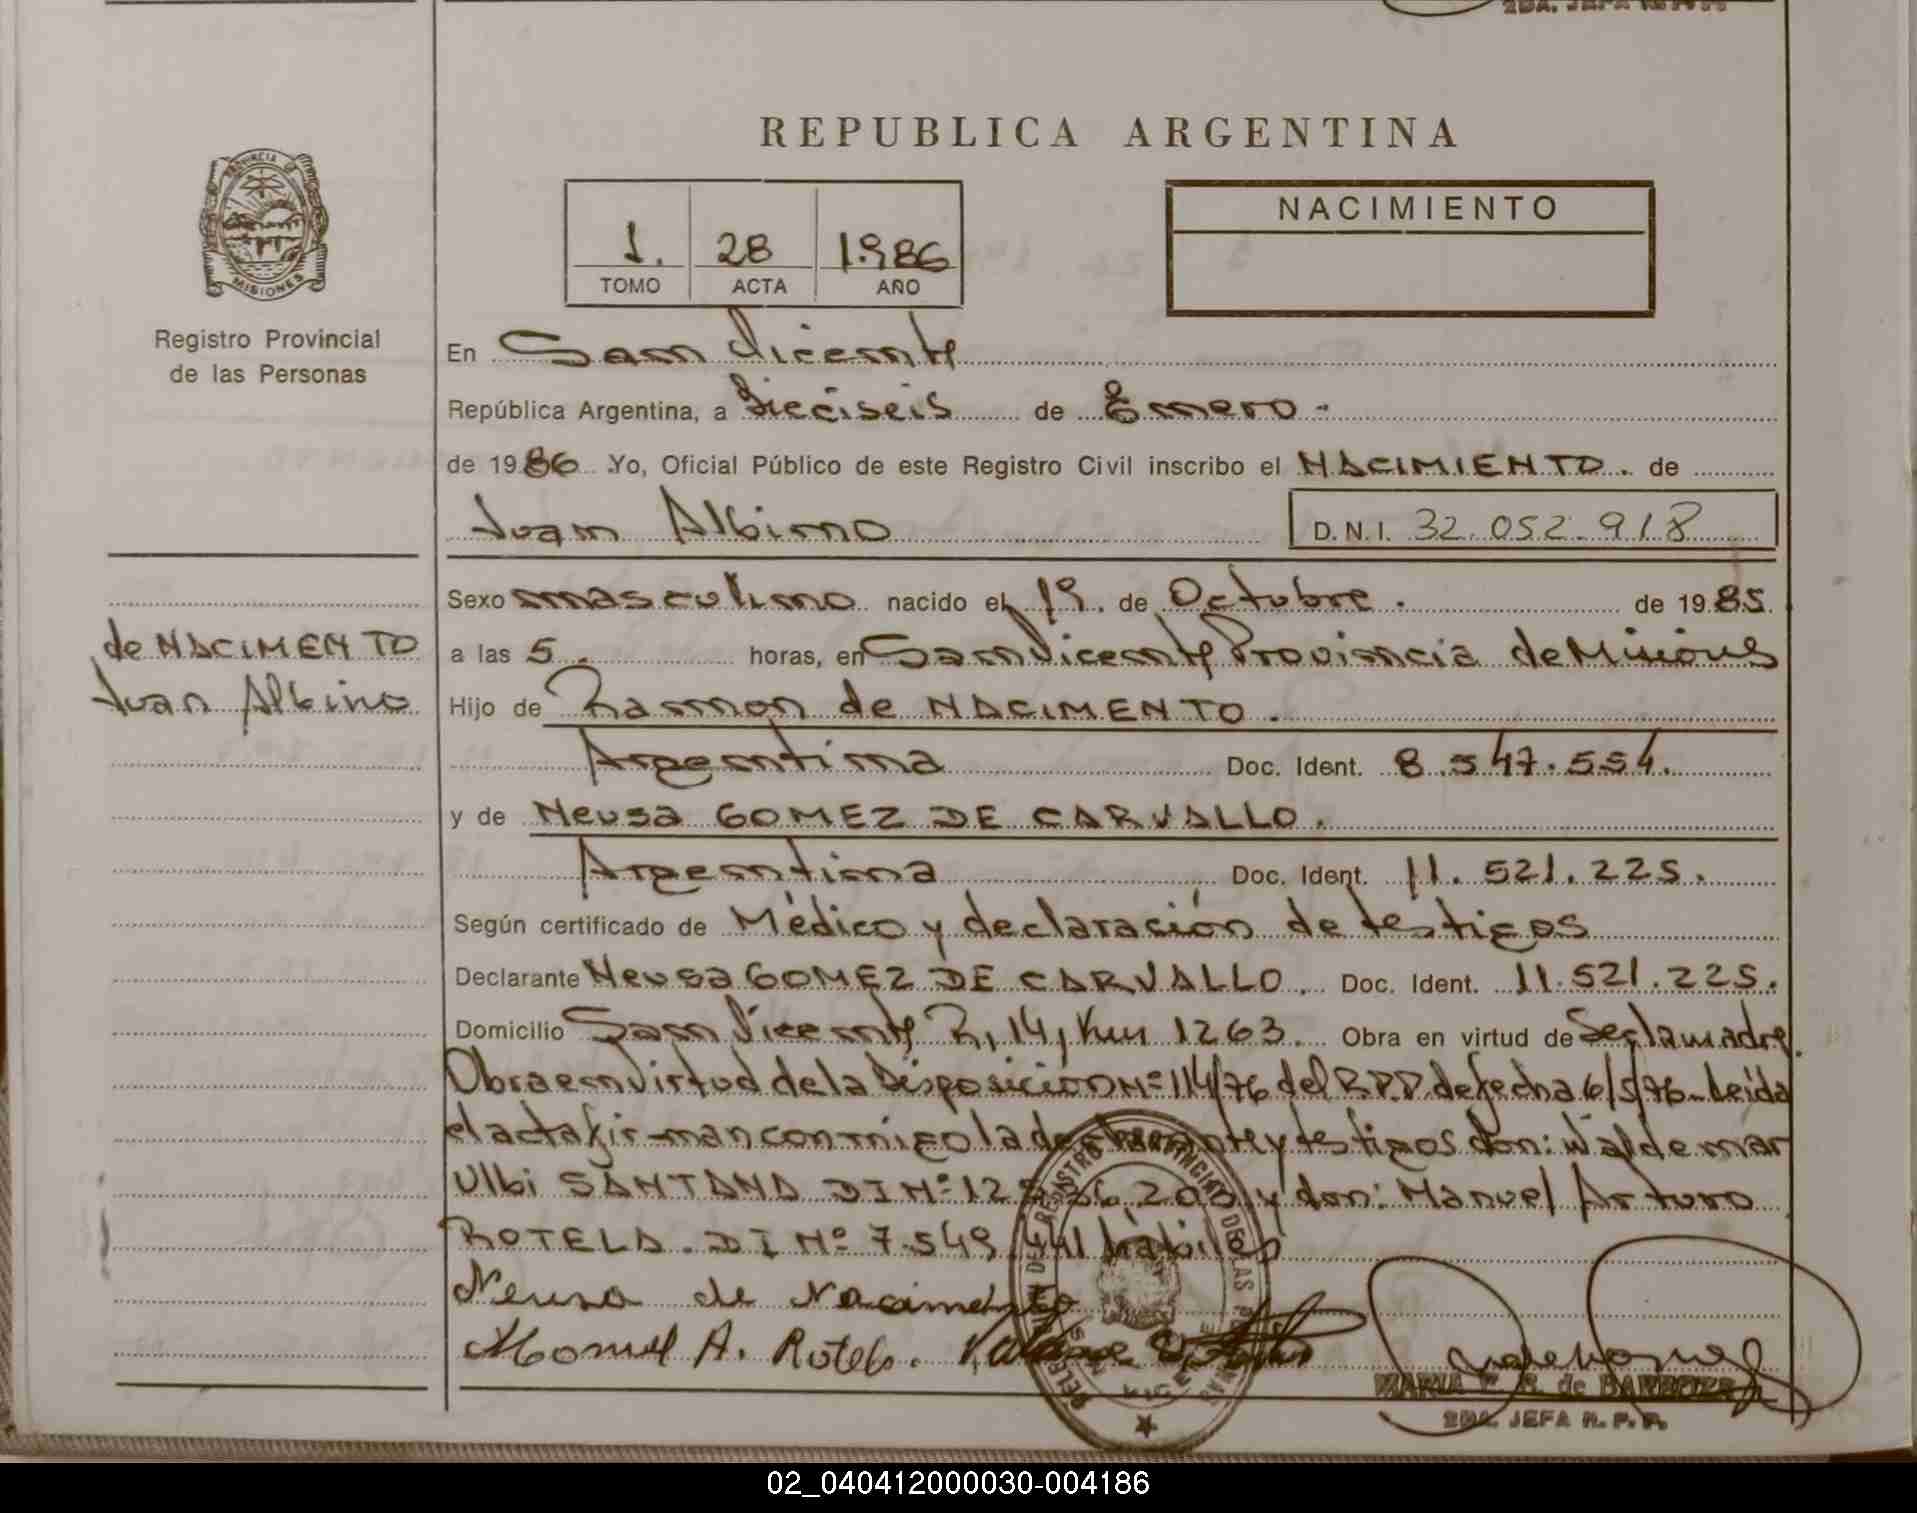 2DA. JEFA R. P. P.
REPUBLICA ARGENTINA
PROVINCIA DE
MISIONES
Registro Provincial
de las Personas
1. 28 1.986
TOMO ACTA AÑO
NACIMIENTO
En San Vicente
República Argentina, a Dieciseis de Enero.-
de 1986 Yo, Oficial Público de este Registro Civil inscribo el NACIMIENTO. de
Juan Albino
D.N.I. 32.052.918
de NACIMENTO
Juan Albino
Sexo masculino nacido el 19. de Octubre. de 1985.
a las 5. horas, en San Vicente Provincia de Misiones
Hijo de Ramon de NACIMENTO.
Argentina Doc. Ident. 8.547.554.
y de Neusa GOMEZ DE CARVALLO.
Argentina Doc. Ident. 11.521.225.
Según certificado de Médico y declaración de testigos
Declarante Neusa GOMEZ DE CARVALLO. Doc. Ident. 11.521.225.
Domicilio San Vicente R, 14, Km 1263. Obra en virtud de Ser la madre.
Obra en Virtud de la Disposición Nº 114/76 del R.P.P. de fecha 6/5/76 - Leída
el acta fir-man conmigo la declarante y testigos don: Waldemar
Ulbi SANTANA DI Nº 12 y don: Manuel Arturo
ROTELA. DI Nº 7.549.441 hábiles
Neusa de Nacimento
Manuel A. Rotela.
MARIA E. R. de BARBOZA
2DA. JEFA R. P. P.
02_040412000030-004186